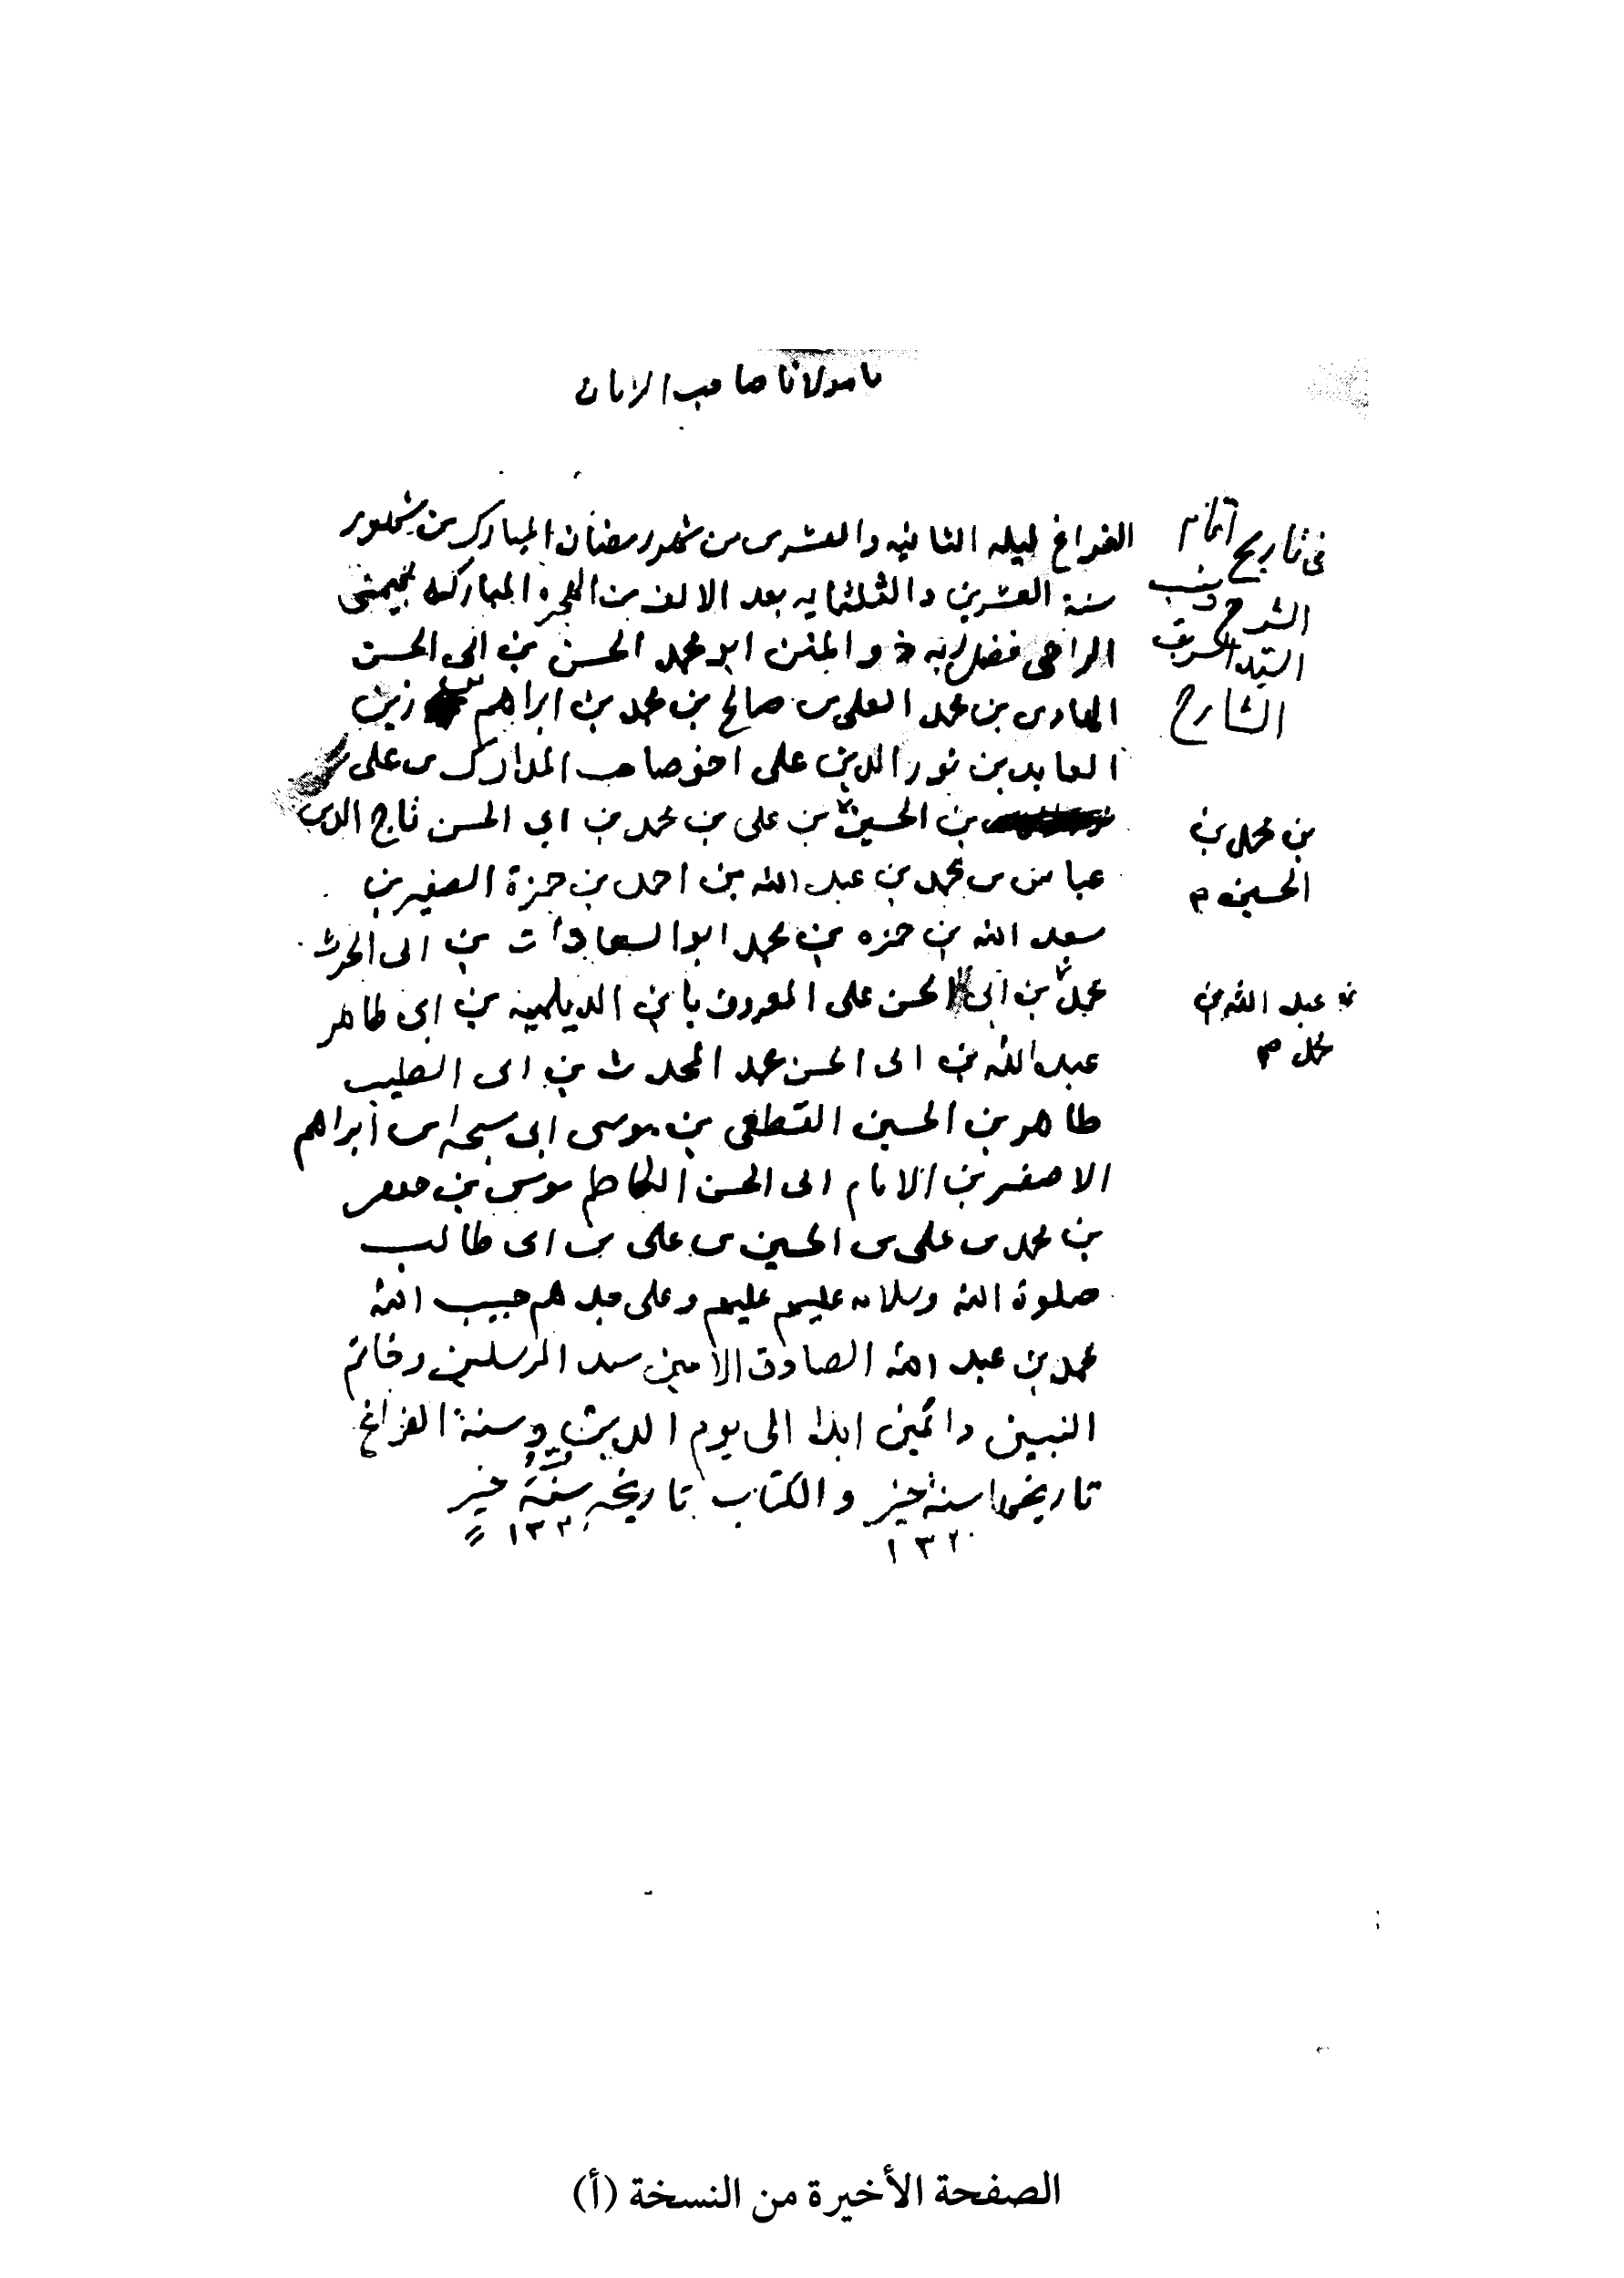 يا مولانا صاحب الزمان
الفراغ ليله الثانيه والعشرين من شهر رمضان المبارك من شهور
سنة العشرين والثلثمايه بعد الالف من الهجره المباركه بيمنى
الراجى فضل ربه ذو المنن ابو محمد الحسن بن ابى الحسن
الهادى بن محمد العلى بن صالح بن محمد بن ابراهيم زين
العابدين بن نور الدين على اخو صاحب المدارك بن على
بن الحسين بن على بن محمد بن ابى الحسن تاج الدين
عباس بن محمد بن عبد الله بن احمد بن حمزة الصغير بن
سعد الله بن حمزه بن محمد ابو السعادات بن ابى الحرث
محمد بن ابى الحسن على المعروف بابن الديلميه بن ابى طاهر
عبد الله بن ابى الحسن محمد المحدث بن ابى الطيب
طاهر بن الحسين القطعى بن موسى ابى سبحه بن ابراهم
الاصغر بن الامام ابى الحسن الكاظم موسى بن جعفر
بن محمد بن على بن الحسين بن على بن ابى طالب
صلوة الله وسلامه عليهم عليهم وعلى جدهم حبيب الله
محمد بن عبد الله الصادق الامين سيد المرسلين وخاتم
النبيين دائمين ابدا الى يوم الدين وسنة الفراغ
تاريخها سنة خير والكتاب تاريخه سنة خير
١٣٢٠ ١٣٢٠
فى تاريخ اتمام
الشرح ونسب
السيد الشريف
الشارح
بن محمد بن
الحسين م
بن عبد الله بن
محمد م
الصفحة الأخيرة من النسخة (أ)